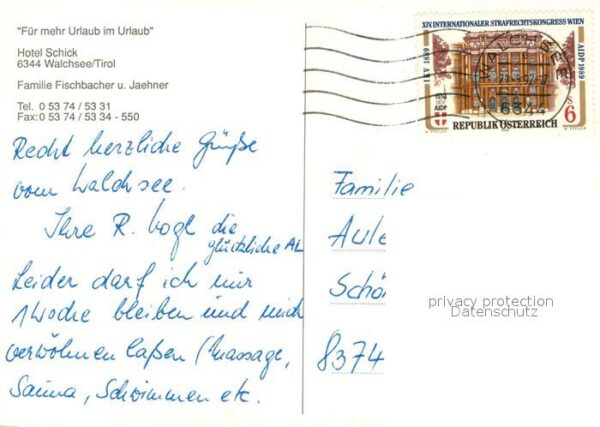 "Für mehr Urlaub im Urlaub"
Hotel Schick
6344 Walchsee/Tirol
Familie Fischbacher u. Jaehner
Tel. 0 53 74 / 53 31
Fax: 0 53 74 / 53 34 - 550
XIV INTERNATIONALER STRAFRECHTSKONGRESS WIEN
IKV 1889
AIDP 1989
S 6
REPUBLIK ÖSTERREICH
WALCHSEE
6344
Recht herzliche Grüße
vom Walchsee.
Ihre R. Vogl die
glückliche AL
Leider darf ich nur
1 Woche bleiben und mich
verwöhnen laßen (Massage,
Sauna, Schwimmen etc.
Familie
Aule
Schö
8374
privacy protection
Datenschutz